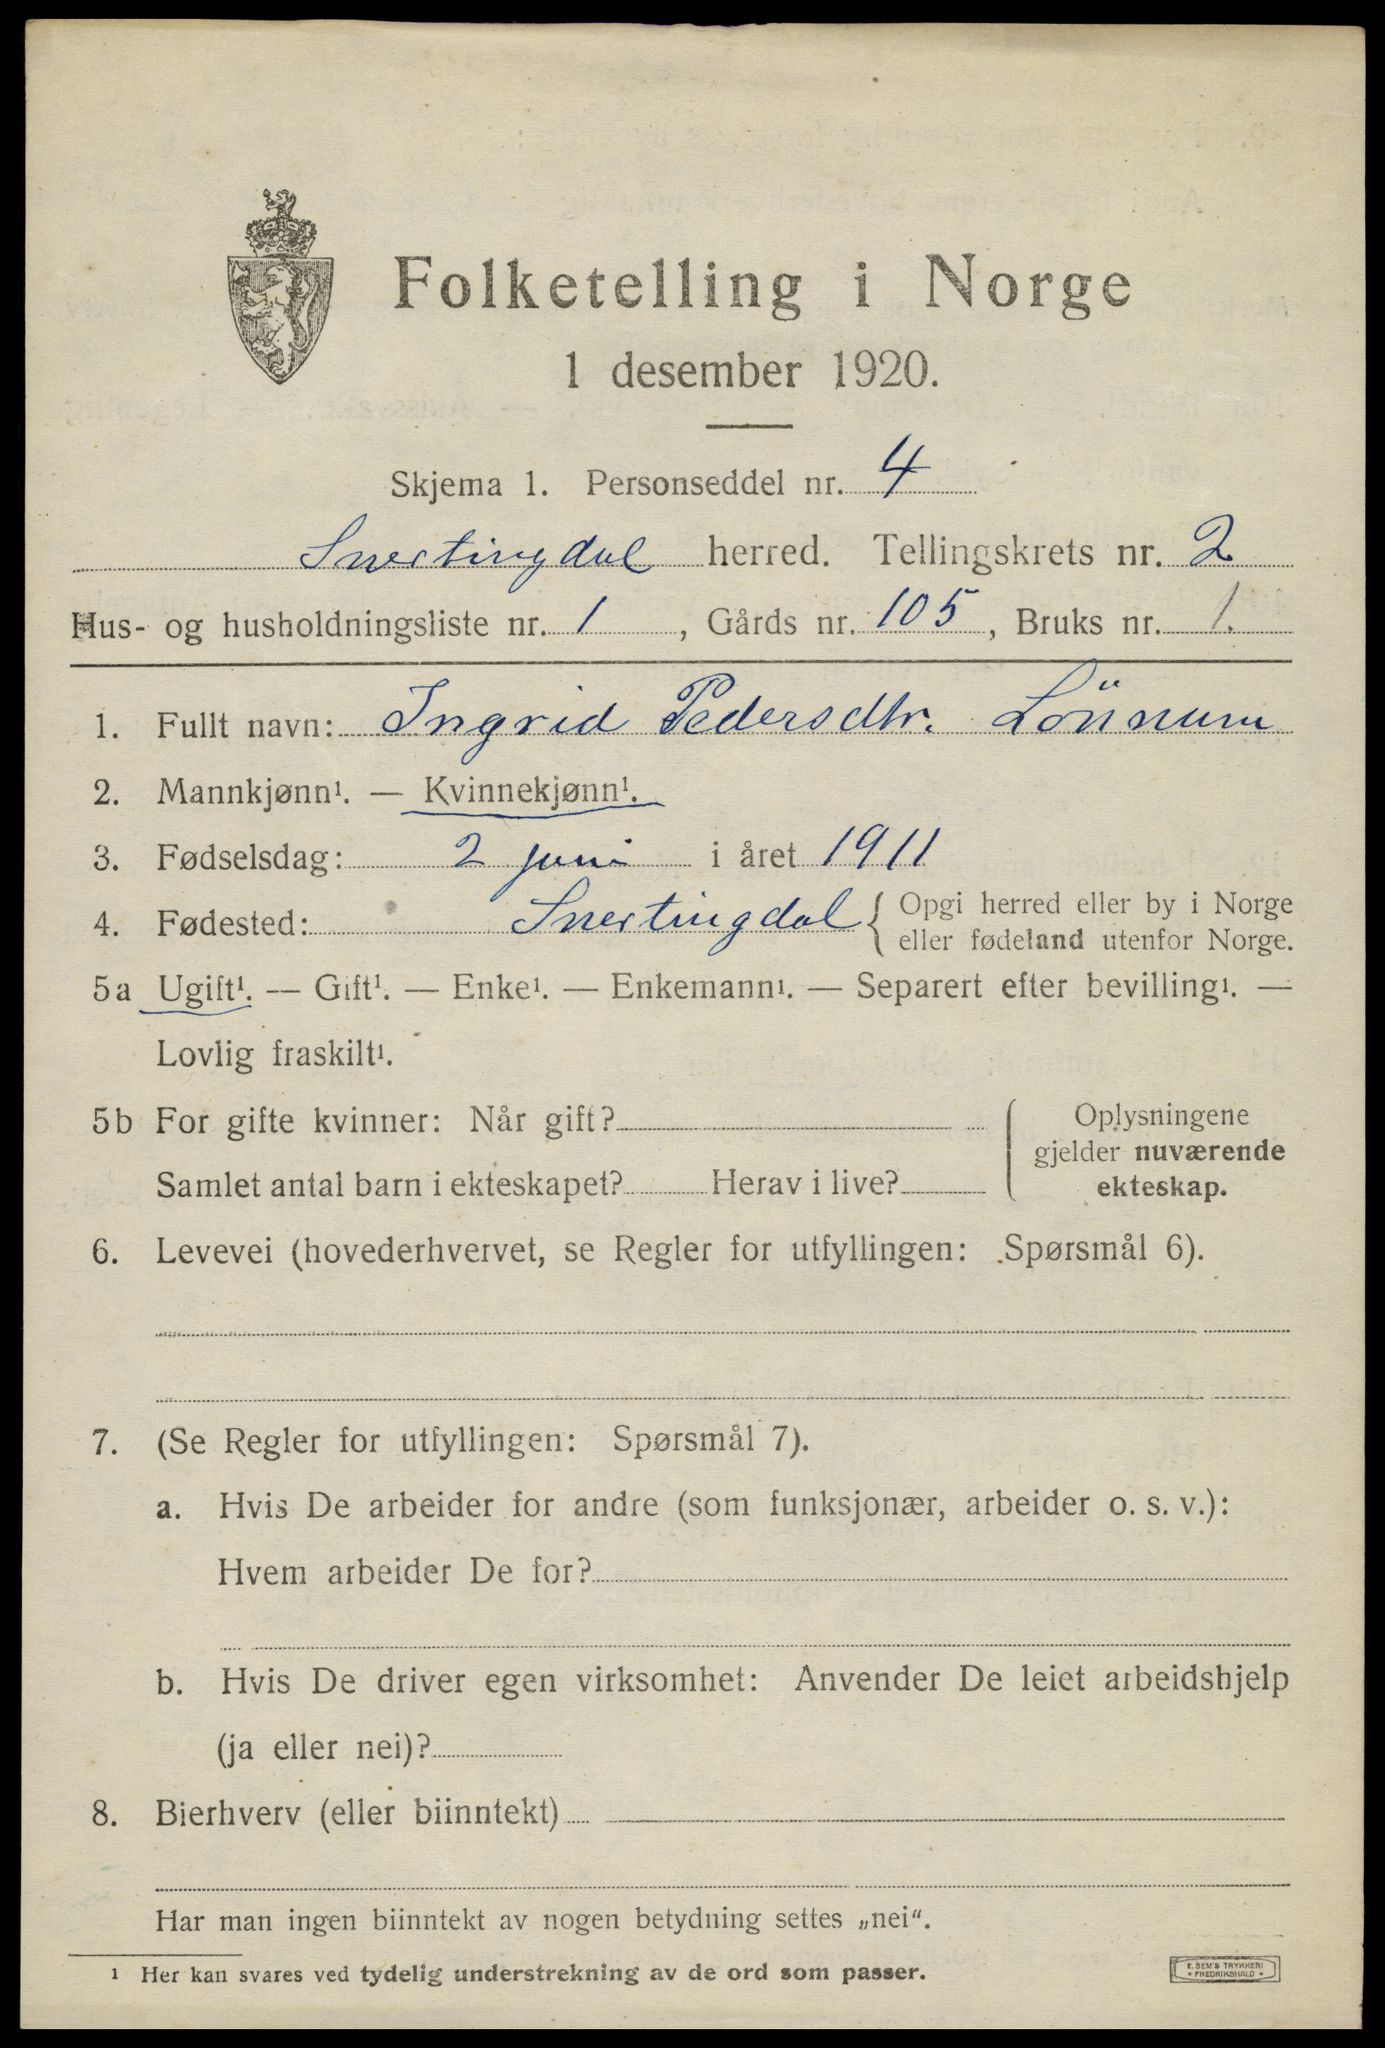 Folketelling i Norge
1 desember 1920.
Skjema 1. Personseddel nr. 4
Snertingdal herred. Tellingskrets nr. 2
Hus- og husholdningsliste nr. 1, Gårds nr. 105, Bruks nr. 1.
1. Fullt navn: Ingrid Pedersdtr. Lönnum
2. Mannkjønn¹. — Kvinnekjønn¹.
3. Fødselsdag: 2 juni i året 1911
4. Fødested: Snertingdal { Opgi herred eller by i Norge
eller fødeland utenfor Norge.
5a Ugift¹. — Gift¹. — Enke¹. — Enkemann¹. — Separert efter bevilling¹. —
Lovlig fraskilt¹.
5b For gifte kvinner: Når gift?
Samlet antal barn i ekteskapet? Herav i live?
Oplysningene
gjelder nuværende
ekteskap.
6. Levevei (hovederhvervet, se Regler for utfyllingen: Spørsmål 6).
7. (Se Regler for utfyllingen: Spørsmål 7).
a. Hvis De arbeider for andre (som funksjonær, arbeider o. s. v.):
Hvem arbeider De for?
b. Hvis De driver egen virksomhet: Anvender De leiet arbeidshjelp
(ja eller nei)?
8. Bierhverv (eller biinntekt)
Har man ingen biinntekt av nogen betydning settes „nei“.
¹ Her kan svares ved tydelig understrekning av de ord som passer.
E. SEM'S TRYKKERI
• FREDRIKSHALD •